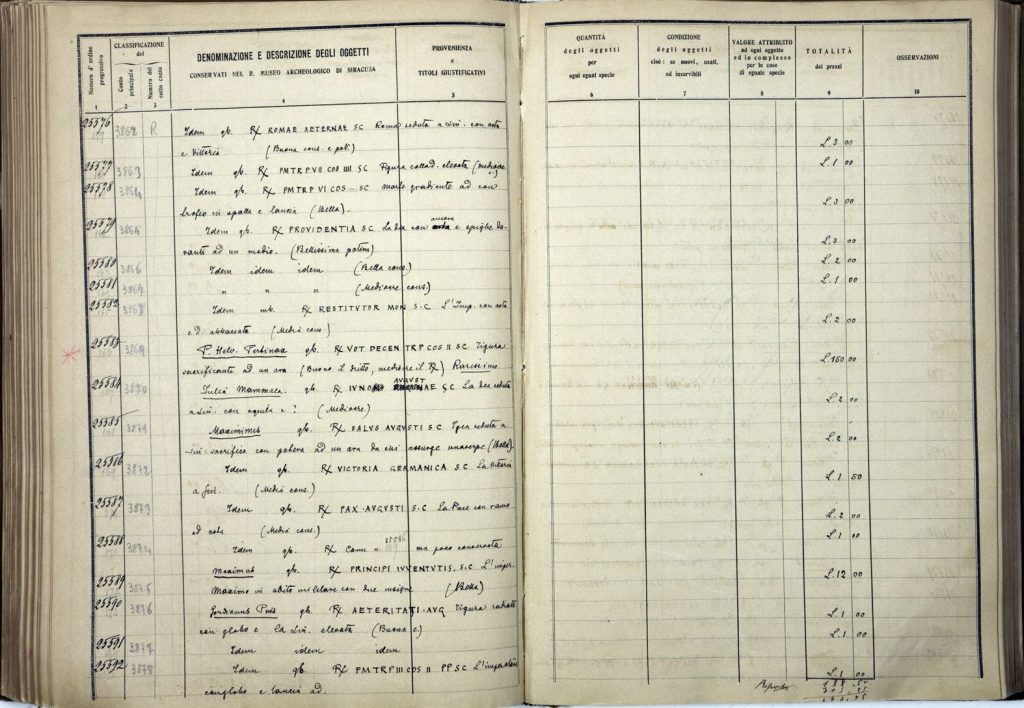 Numero d'ordine progressivo
CLASSIFICAZIONE del
Conto principale
Numero del sotto conto
DENOMINAZIONE E DESCRIZIONE DEGLI OGGETTI
CONSERVATI NEL R. MUSEO ARCHEOLOGICO DI SIRACUSA
PROVENIENZA
e
TITOLI GIUSTIFICATIVI
QUANTITÀ
degli oggetti
per
ogni egual specie
CONDIZIONE
degli oggetti
cioè: se nuovi, usati,
od inservibili
VALORE ATTRIBUITO
ad ogni oggetto
ed in complesso
per le cose
di eguale specie
TOTALITÀ
dei prezzi
OSSERVAZIONI
1 2 3 4 5 6 7 8 9 10
25576 R Idem gb. ℞ ROMAE AETERNAE SC Roma seduta a sin. con asta
e Vittoria (Buona cons. e pat.) L. 3 00
25577 3863 Idem gb. ℞ PMTRPVII COS IIII SC Figura elevata L. 1 00
25578 Idem gb. ℞ PMTRPVI COS SC Marte gradiente ad con
trofeo in spalla e lancia (Bella). L. 3 00
25579 Idem gb. ℞ PROVIDENTIA SC La dea con e spighe da-
vanti ad un modio. (Bellissima patina) L. 3 00
25580 3866 Idem idem idem (Bella cons.) L. 2 00
25581 " " " (Mediocre cons.) L. 1 00
25582 3868 Idem mb. ℞ RESTITVTOR MON S.C L'Imp. con asta
e d. abbassata. (Media cons.) L. 2 00
25583 3869 P. Helv. Pertinax gb. ℞ VOT DECEN TRP COS II SC Figura
sacrificante ad un ara (Buono il dritto, mediocre il ℞) Rarissimo L. 150 00
25584 3870 Iulia Mammaea. gb. ℞ AVGVST SC La dea seduta
a sin. con e ? (Mediocre) L. 2 00
25585 3871 Maximinus gb. ℞ SALVS AVGVSTI SC Igea seduta a
sin. sacrifica con patera ad un ara da cui assurge un serpe (Bella). L. 2 00
25586 3872 Idem gb. ℞ VICTORIA GERMANICA SC La Vittoria
a sin. (Media cons.) L. 1 50
25587 3873 Idem gb. ℞ PAX AVGVSTI S.C La Pace con ramo
ed asta (Media cons.) L. 2 00
25588 3874 Idem gb. ℞ Come n. 25586 ma poco conservata L. 1 00
Maximus gb. ℞ PRINCIPI IVVENTVTIS. S.C L'imper.
25589 3875 Maximo in abito militare con due insegne (Bella) L. 12 00
25590 3876 Gordianus Pius gb. ℞ AETERITATI AVG Figura radiata
con globo e la sin. elevata (Buona c.) L. 1 00
25591 3877 Idem idem idem L. 1 00
25592 3878 Idem gb. ℞ PMTRPIII COS II PP SC L'imperatore
con globo e lancia ad. L. 1 00
Riporto